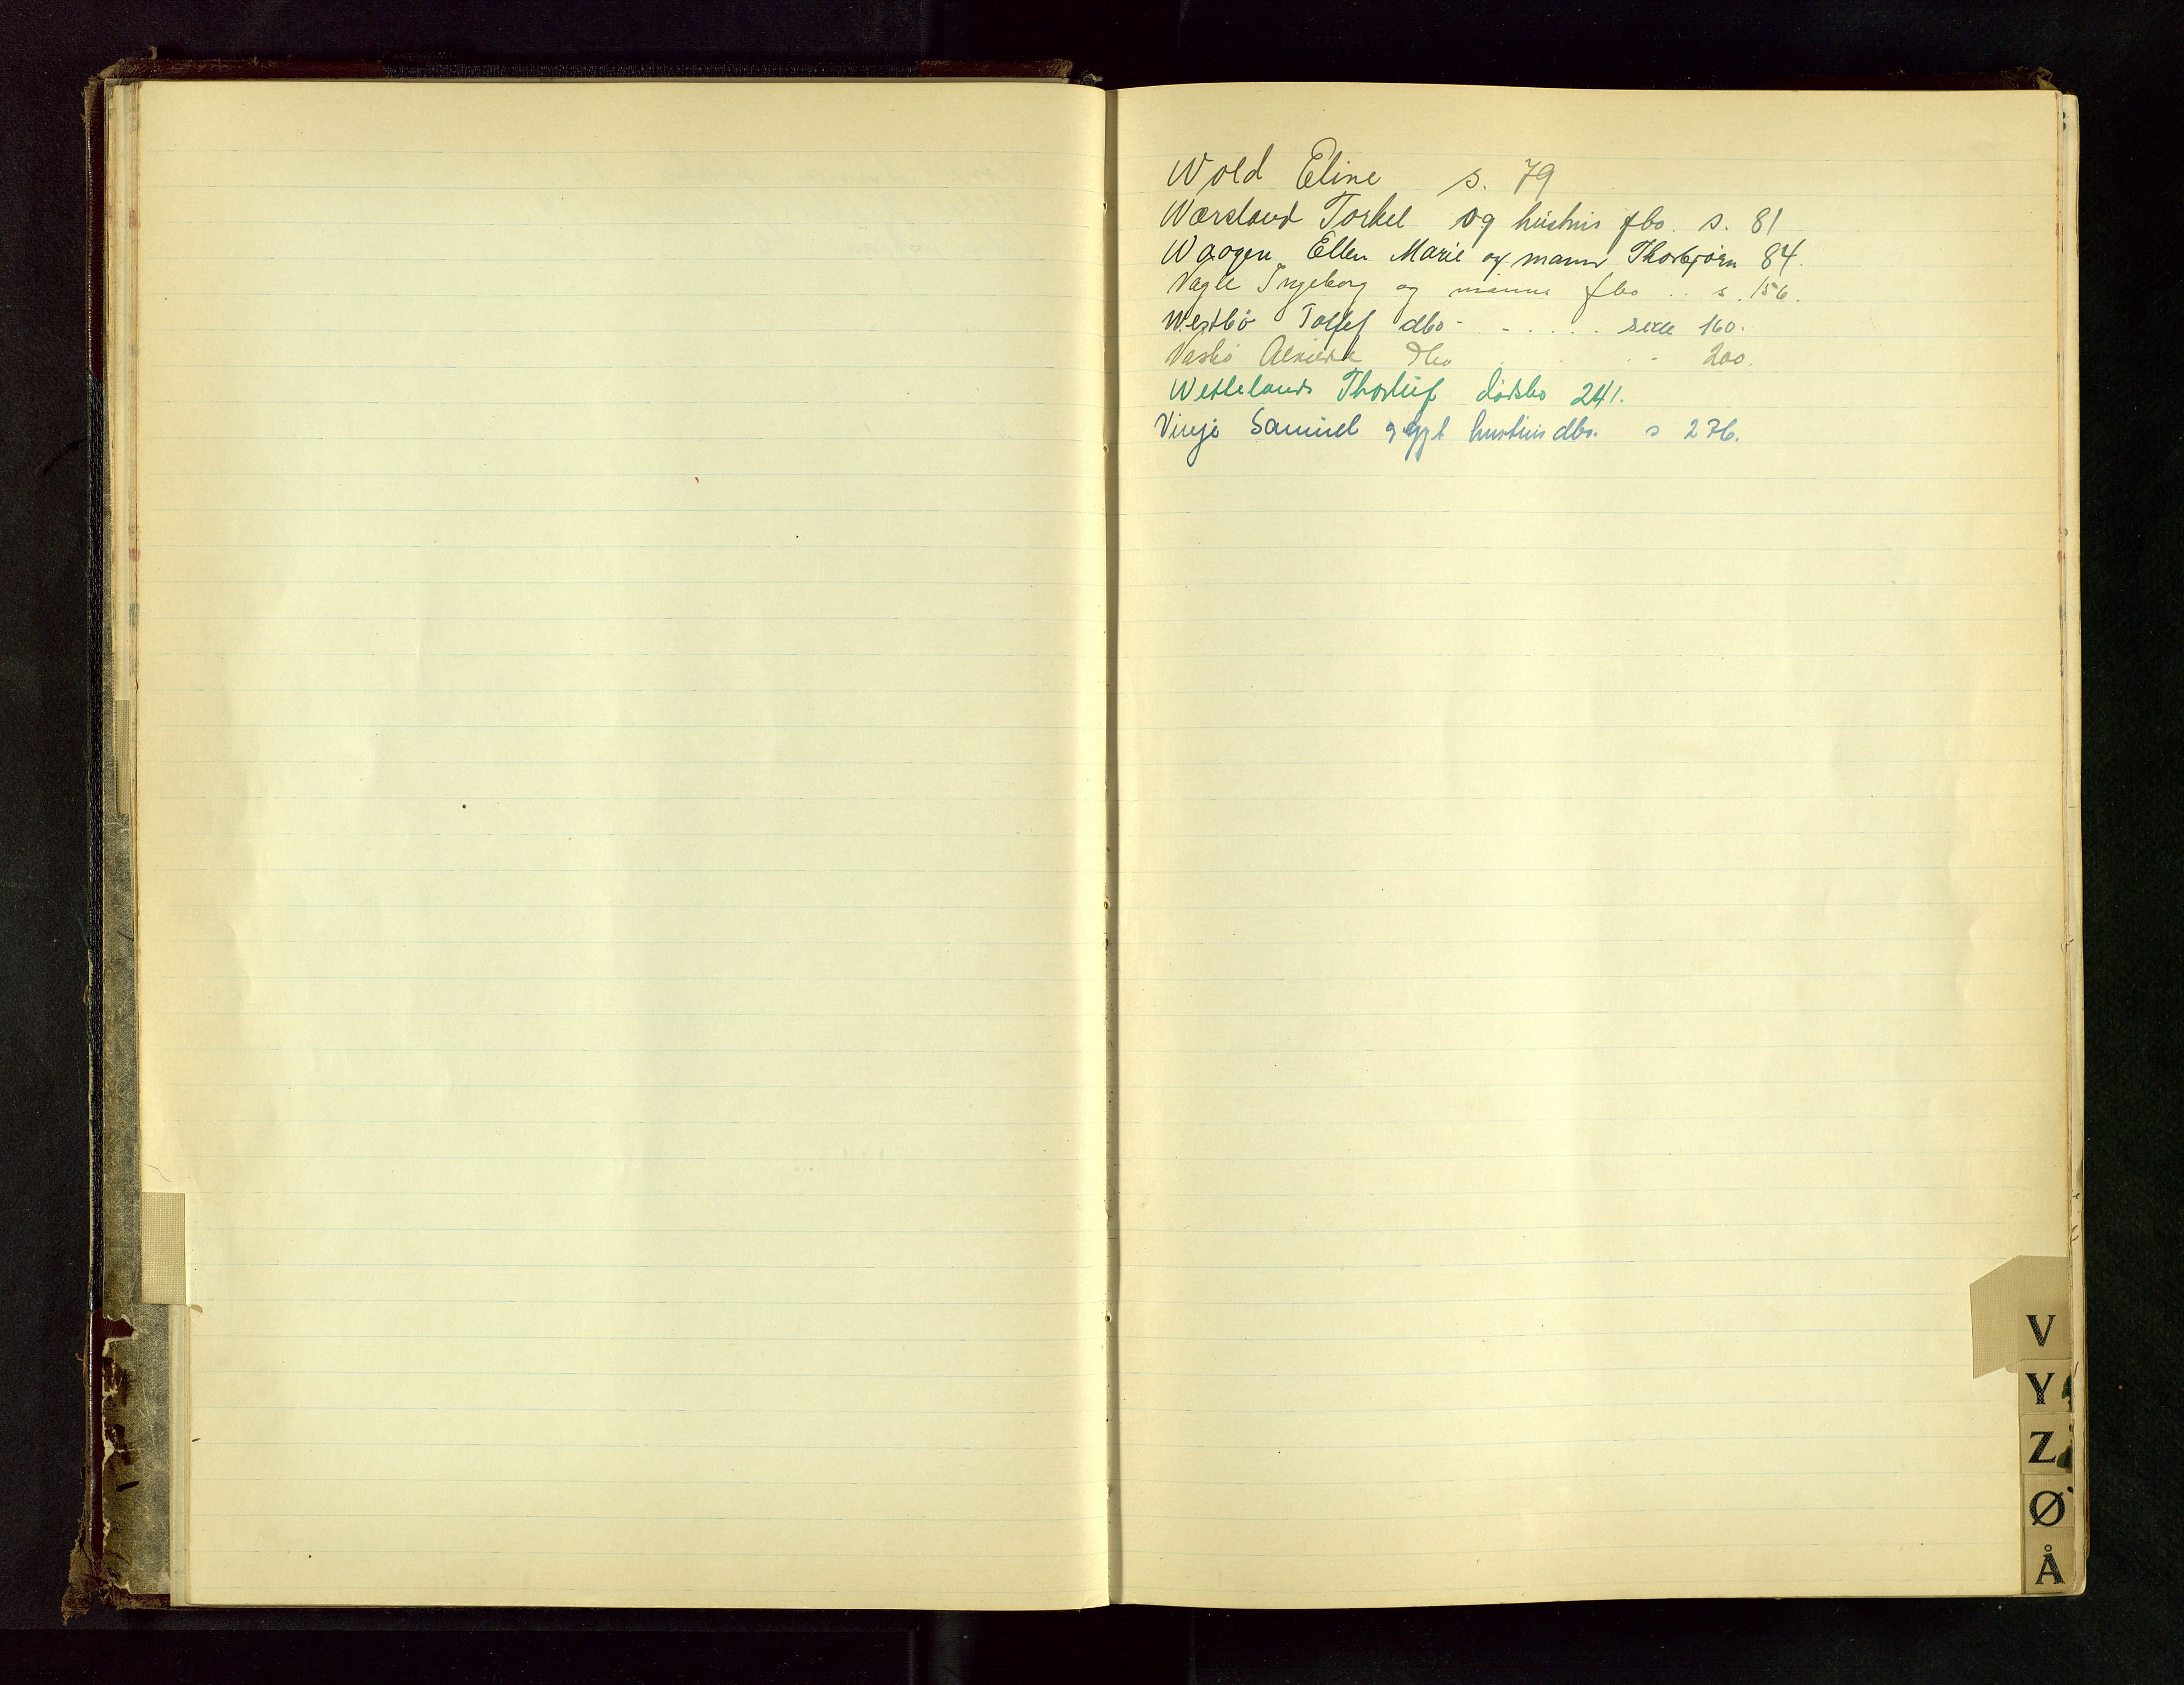 Wold Eline s. 79
Wærsland Torkel og hustrus fbo. s. 81
Waagen Ellen Marie og mann Thorbjørn 84.
Vagle Ingeborg og manns fbo .. s. 156.
Westbø Tollef dbo - - . . . . side 160.
Vasbø dbo . . . - 200.
Wetteland Thorleif dødsbo 241.
Vinje Samuel hustrus dbo. s 276.
V
Y
Z
Ø
Å